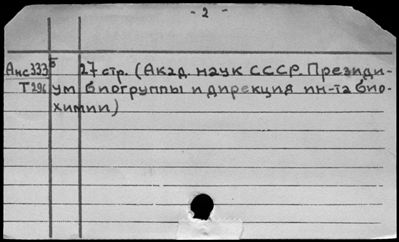 - 2 -
Анс333б 27 стр. (Акад. наук СССР. Президи-
Т296 ум биогруппы и дирекция ин-та био-
химии)